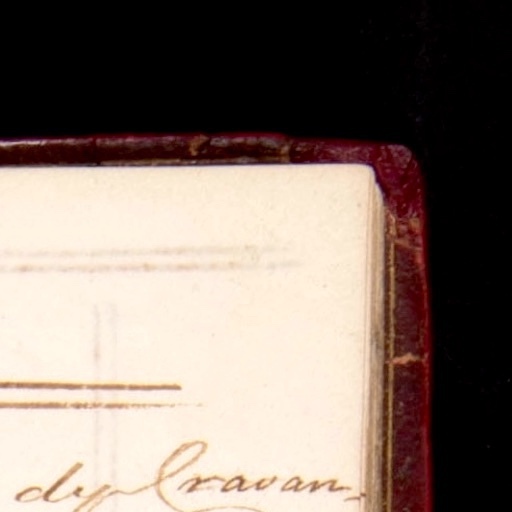 dy Cravan.